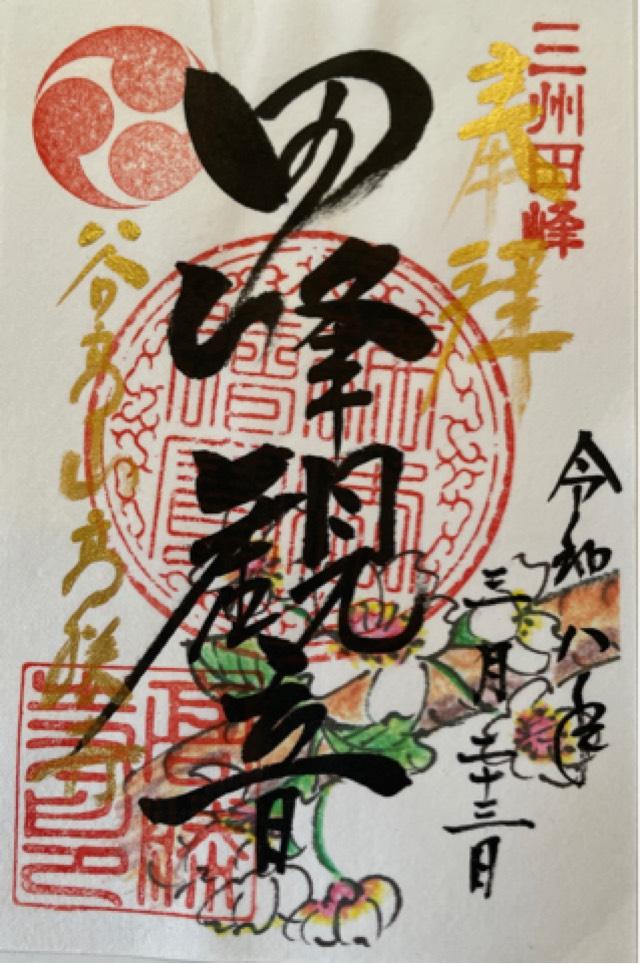 三州田峰
奉拝
令和八年
三月二十三日
田峰観音
谷高山高勝寺